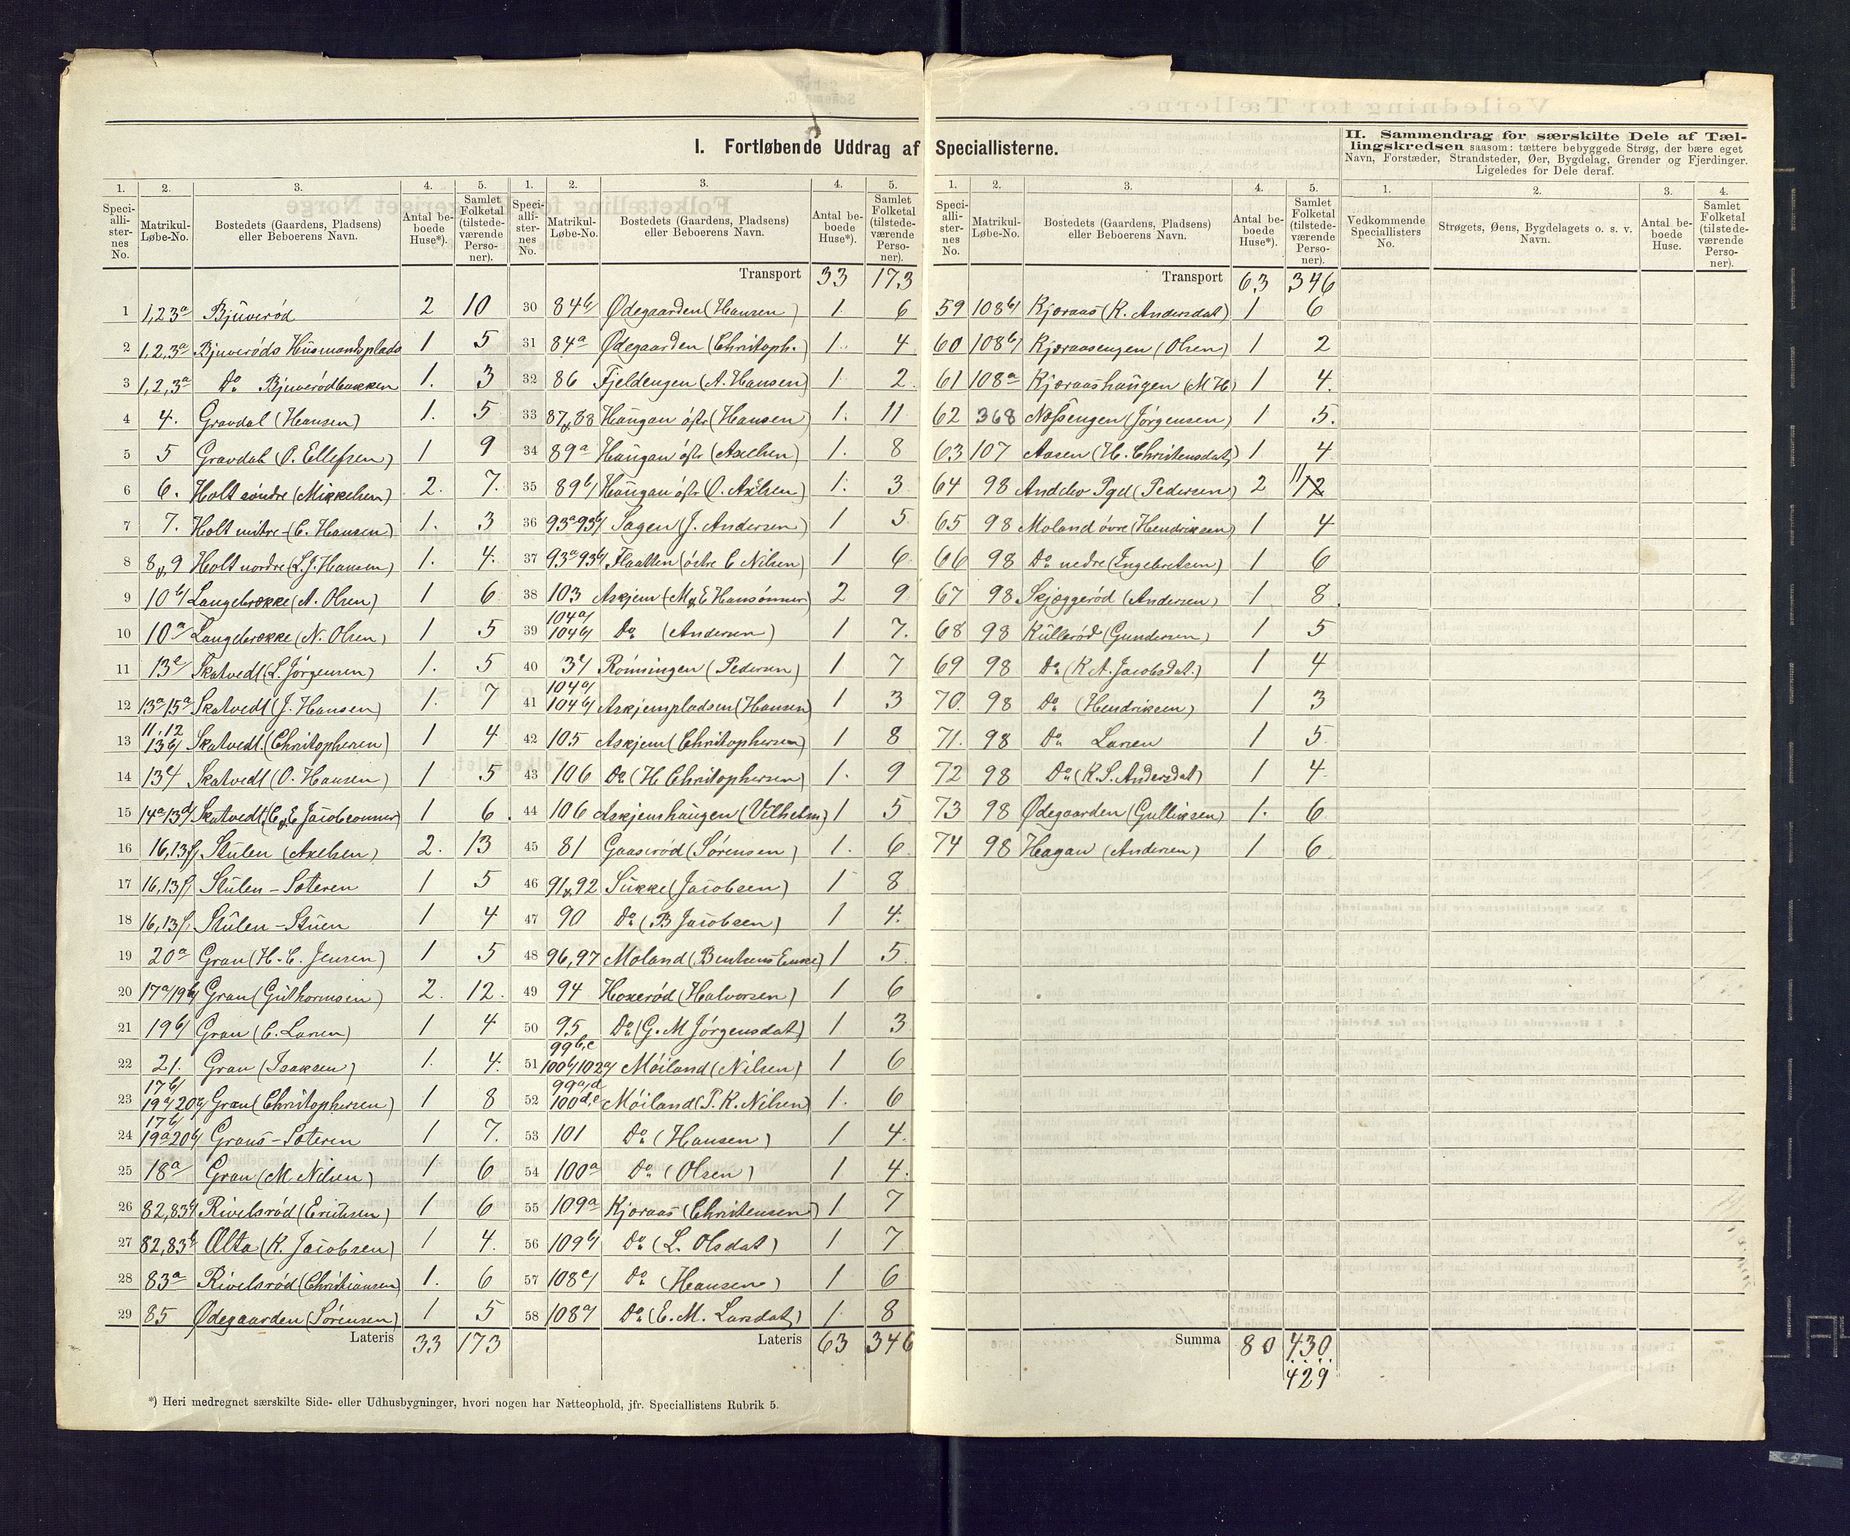 I. Fortløbende Uddrag af Speciallisterne.
II. Sammendrag for særskilte Dele af Tællingskredsen saasom: tættere bebyggede Strøg, der bære eget Navn, Forstæder, Strandsteder, Øer, Bygdelag, Grender og Fjerdinger. Ligeledes for Dele deraf.
1. 2. 3. 4. 5. 1. 2. 3. 4. 5. 1. 2. 3. 4. 5. 1. 2. 3. 4.
Speciallisternes No. Matrikul-Løbe-No. Bostedets (Gaardens, Pladsens) eller Beboerens Navn. Antal beboede Huse*). Samlet Folketal (tilstedeværende Personer).
Speciallisternes No. Matrikul-Løbe-No. Bostedets (Gaardens, Pladsens) eller Beboerens Navn. Antal beboede Huse*). Samlet Folketal (tilstedeværende Personer).
Speciallisternes No. Matrikul-Løbe-No. Bostedets (Gaardens, Pladsens) eller Beboerens Navn. Antal beboede Huse*). Samlet Folketal (tilstedeværende Personer).
Vedkommende Speciallisters No. Strøgets, Øens, Bygdelagets o. s. v. Navn. Antal beboede Huse. Samlet Folketal (tilstedeværende Personer).
1 1,2 3a Bjuverød 2 10
2 1,2,3a Bjuverøds Husmandsplads 1 5
3 1,2,3a Do Bjuverødbakken 1. 3
4 4. Gravdal (Hansen) 1. 5
5 5 Gravdal (O. Ellefsen) 1 9
6 6. Holt søndre (Mikkelsen) 2. 7.
7 7. Holt mitre (C. Hansen) 1. 3
8 8 & 9 Holt nordre (L. J. Hansen) 1. 4.
9 10b Langebrække (A. Olsen) 1 6
10 10a Langebrække (N. Olsen) 1 5
11 13e Skatvedt (L. Jørgensen) 1. 5
12 13a 15a Skatvedt (J. Hansen) 1. 7
13 11, 12 13b Skatvedt (Christophersen) 1 4
14 134 Skatvedt (O. Hansen) 1 5
15 14a 13d Skatvedt (C & E Jacobsønner) 1 6.
16 16, 13f Stulen (Axelsen) 2. 13
17 16, 13f Stulen-Sæteren 1 5
18 16, 13f Stulen-Stuen 1 4
19 20a Gran (H. C. Jensen) 1 5
20 17a 19b Gran (Guthormsen) 2. 12.
21 19b Gran (C. Larsen) 1 4
22 21. Gran (Isaksen) 1. 4.
23 17b 19a 20b Gran (Christophersen) 1 8
24 17b 19a 20b Grans-Sæteren 1 7.
25 18a Gran (M. Nilsen) 1 6
26 82, 83b Rivelsrød (Erichsen) 1 6
27 82, 83b Ælta (K. Jacobsen) 1 4.
28 83a Rivelsrød (Christiansen) 1. 6
29 85 Ødegaarden (Sørensen) 1 5
Lateris 33 173
*) Heri medregnet særskilte Side- eller Udhusbygninger, hvori nogen har Natteophold, jfr. Speciallistens Rubrik 5.
Transport 33 173
30 84b Ødegaarden (Hansen) 1. 6
31 84a Ødegaarden (Christoph. 1. 4
32 86 Fjeldengen (A. Hansen) 1. 2.
33 87 & 88 Haugan østr (Hansen) 1. 11
34 89a Haugan østr (Axelsen) 1. 8
35 89b Haugan østr (O. Axelsen) 1. 3
36 93a 93b Sagen (J. Andersen) 1 5
37 93a 93b Flaatten (østre C Nilsen) 1 6
38 103 Askjem (M & E Hansønner) 2 9
39 104a 104b Do (Andersen) 1 7.
40 34 Rønningen (Pedersen) 1 7
41 104a 104b Askjempladsen (Hansen) 1 3
42 105 Askjem (Christophersen) 1 8
43 106 Do (H Christophersen) 1. 9
44 106 Askjemshaugen (Vilhelm) 1 5
45 81 Gaaserød (Sørensen) 1. 6.
46 91 & 92 Sukke (Jacobsen) 1 8
47 90 Do (B Jacobsen) 1 4.
48 96, 97 Moland (Bentsens Enke) 1 5.
49 94 Hoxerød (Halvorsen) 1 6
50 95. Do (G. M Jørgensdat) 1 3
51 99b, c 100b 102a Møiland (Nilsen) 1 6
52 99a, d 100d, e Møiland (P. K. Nilsen) 1. 6
53 101 Do (Hansen) 1 4.
54 100a Do (Olsen) 1 4.
55 109a Kjøraas (Christensen) 1 7
56 109b Do (L. Olsdat) 1 7
57 108c Do (Hansen) 1 6
58 108a Do (E. M. Larsdat) 1. 8
Lateris 63 346
Transport 63 346
59 108b Kjøraas (K. Andersdat) 1 6
60 108b Kjøraasengen (Olsen) 1 2
61 108a Kjøraashaugen (M H) 1 4.
62 368 Nøssengen (Jørgensen) 1 5.
63 107 Aasen (H. Christensdat) 1 4
64 98 Andebo Pgd (Pedersen) 2 11 12
65 98 Moland øvre (Hendriksen) 1 4
66 98 Do nedre (Ingebretsen) 1 6
67 98 Skjæggerød (Andersen) 1 8.
68 98 Kullerød (Gundersen) 1 5
69 98 Do (K A. Jacobsdat.) 1 4
70. 98 Do (Hendriksen) 1 3
71. 98 Do Larsen 1 5
72 98 Do (K. S. Andersdat) 1 4.
73 98 Ødegaarden (Gulliksen) 1. 6
74 98 Heagan (Andersen) 1 6
Summa 80 430
429